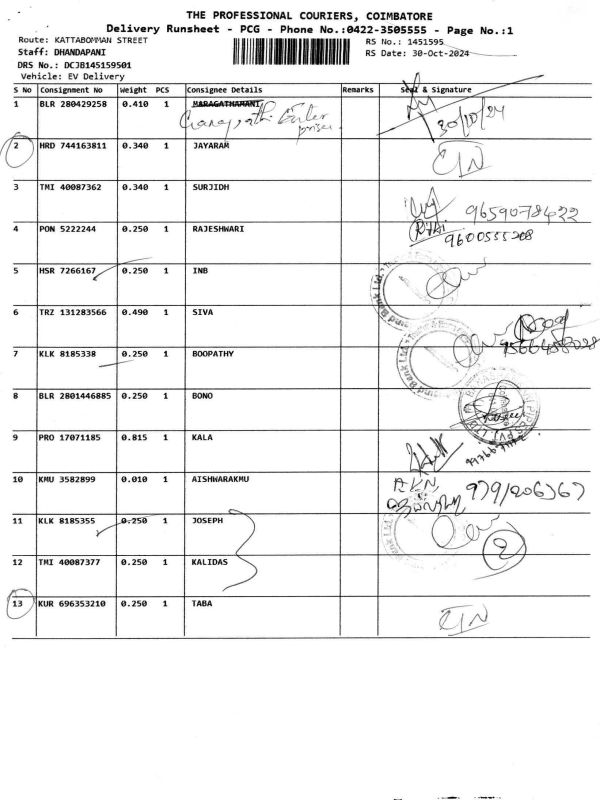 THE PROFESSIONAL COURIERS, COIMBATORE
Delivery Runsheet - PCG - Phone No.:0422-3505555 - Page No.:1
Route: KATTABOMMAN STREET
RS No.: 1451595
Staff: DHANDAPANI
RS Date: 30-Oct-2024
DRS No.: DCJB145159501
Vehicle: EV Delivery
S No Consignment No Weight PCS Consignee Details Remarks Seal & Signature
1 BLR 280429258 0.410 1 MARAGATHAMANI
Ganapathi Enter
prises
30/10/24
2 HRD 744163811 0.340 1 JAYARAM
3 TMI 40087362 0.340 1 SURJIDH
9659078422
4 PON 5222244 0.250 1 RAJESHWARI
9600555208
5 HSR 7266167 0.250 1 INB
6 TRZ 131283566 0.490 1 SIVA
7 KLK 8185338 0.250 1 BOOPATHY
8 BLR 2801446885 0.250 1 BONO
9 PRO 17071185 0.815 1 KALA
10 KMU 3582899 0.010 1 AISHWARAKMU
11 KLK 8185355 0.250 1 JOSEPH
2
12 TMI 40087377 0.250 1 KALIDAS
13 KUR 696353210 0.250 1 TABA